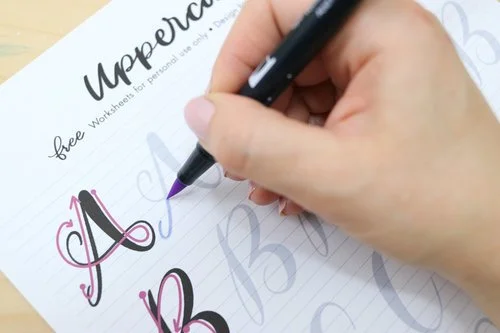 free
Worksheets for personal use only • Design b
A A
B B B
C